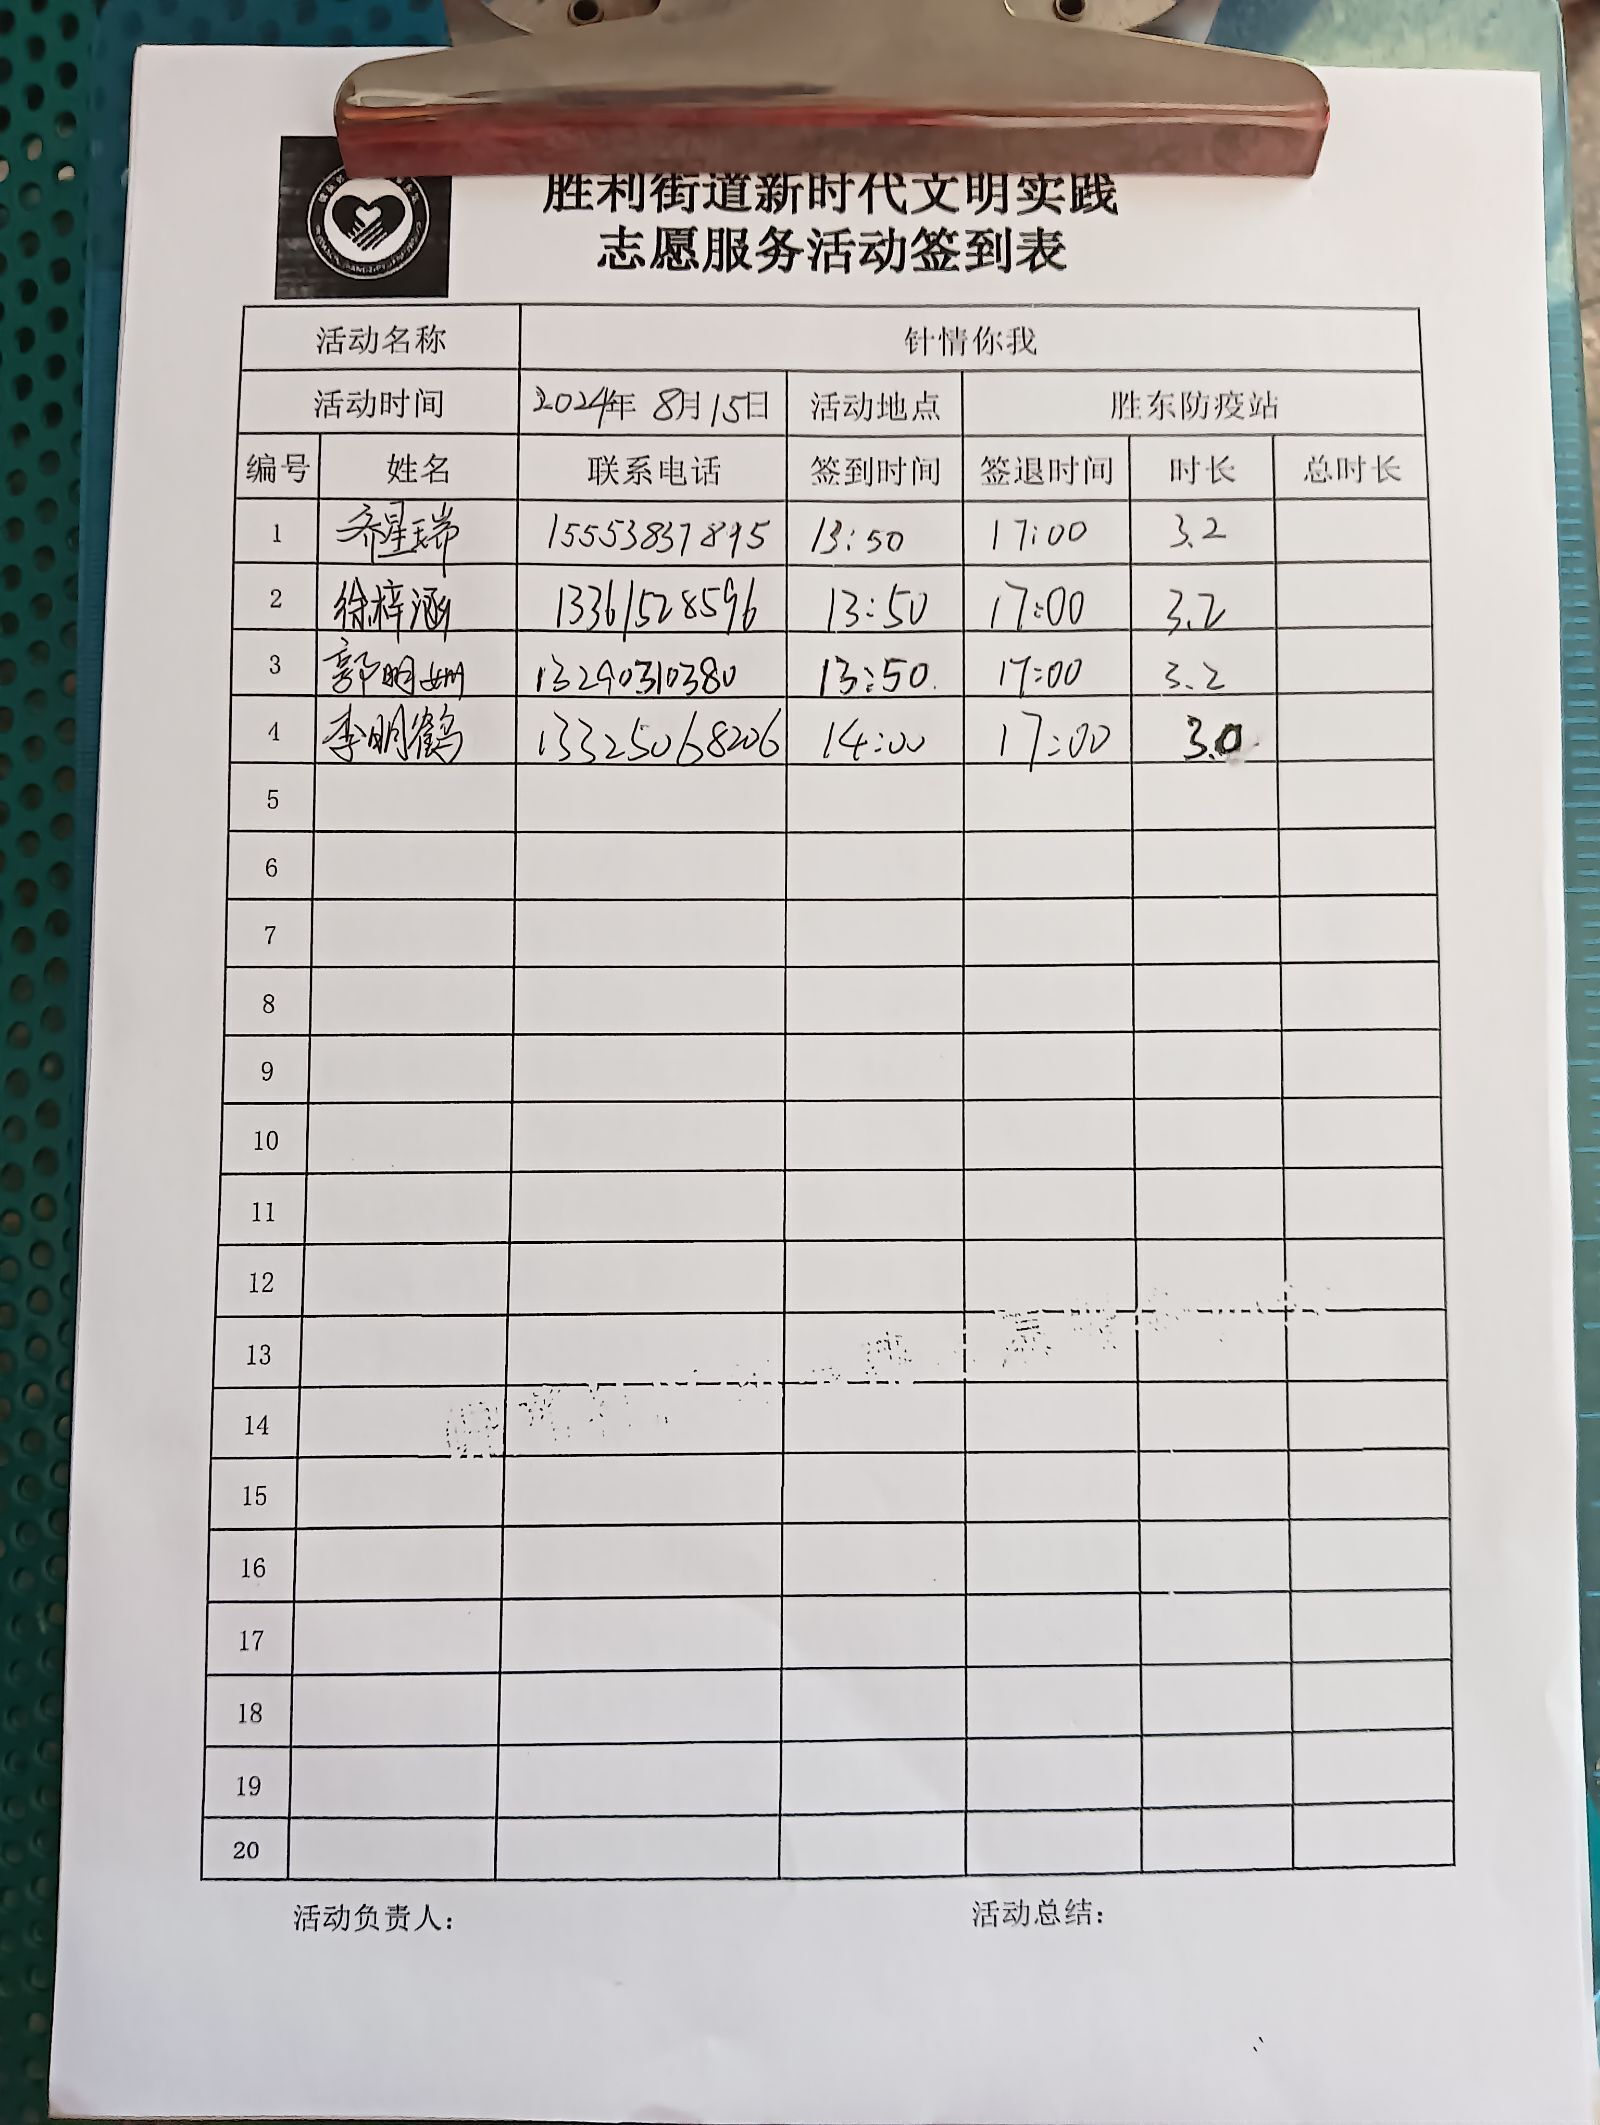 胜利街道新时代文明实践
志愿服务活动签到表
活动名称 针情你我
活动时间 2024年 8月15日 活动地点 胜东防疫站
编号 姓名 联系电话 签到时间 签退时间 时长 总时长
1 齐星瑞 15553837895 13:50 17:00 3.2
2 徐梓涵 13361528596 13:50 17:00 3.2
3 郭明姗 13290310380 13:50 17:00 3.2
4 李明鹤 13325068206 14:00 17:00 3.0
5
6
7
8
9
10
11
12
13
14
15
16
17
18
19
20
活动负责人: 活动总结: